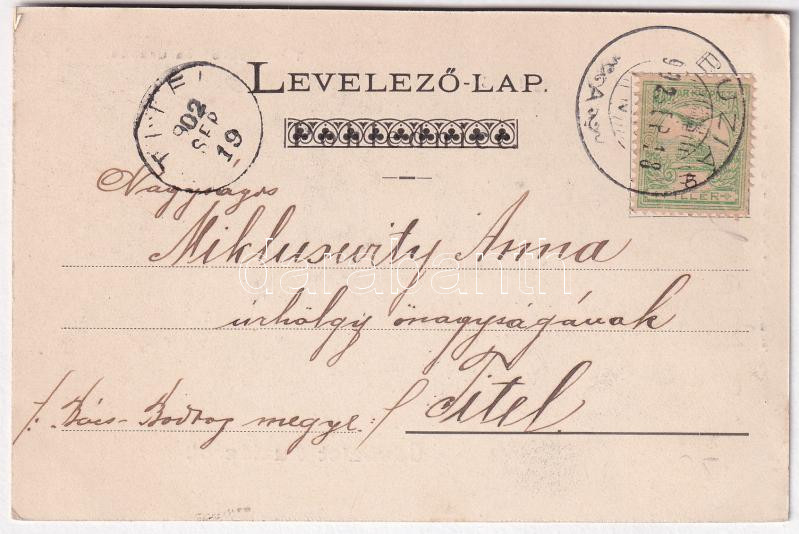 LEVELEZŐ-LAP.
TITEL
902
SEP
19
BUZIÁS
902
18
Nagyságos
Miklusevity Anna
úrhölgy őnagyságának
Titel.
/: Bács-Bodrog megye. :/
darabanth